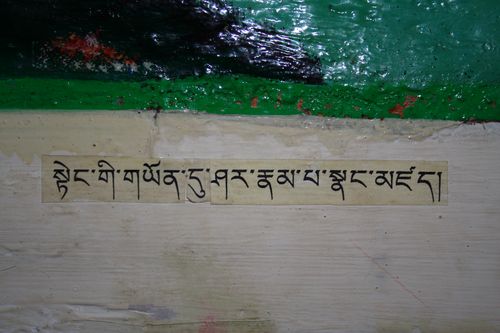 སྟེང་གི་གཡོན་དུ་ཤར་རྣམ་པ་སྣང་མཛད།